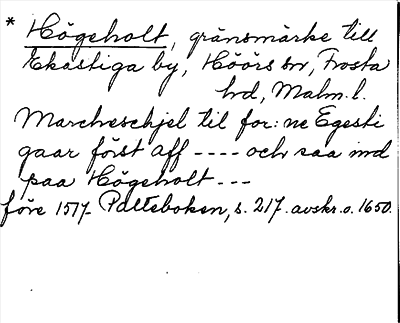 * Högeholt, gränsmärke till
Ekastiga by, Höörs sn, Frosta
hd, Malm. l.
Marcheschjel til for: ne Egesti
gaar först aff ---- och saa ind
paa Högeholt ---
före 1517. Palteboken, s. 217. avskr. o. 1650.